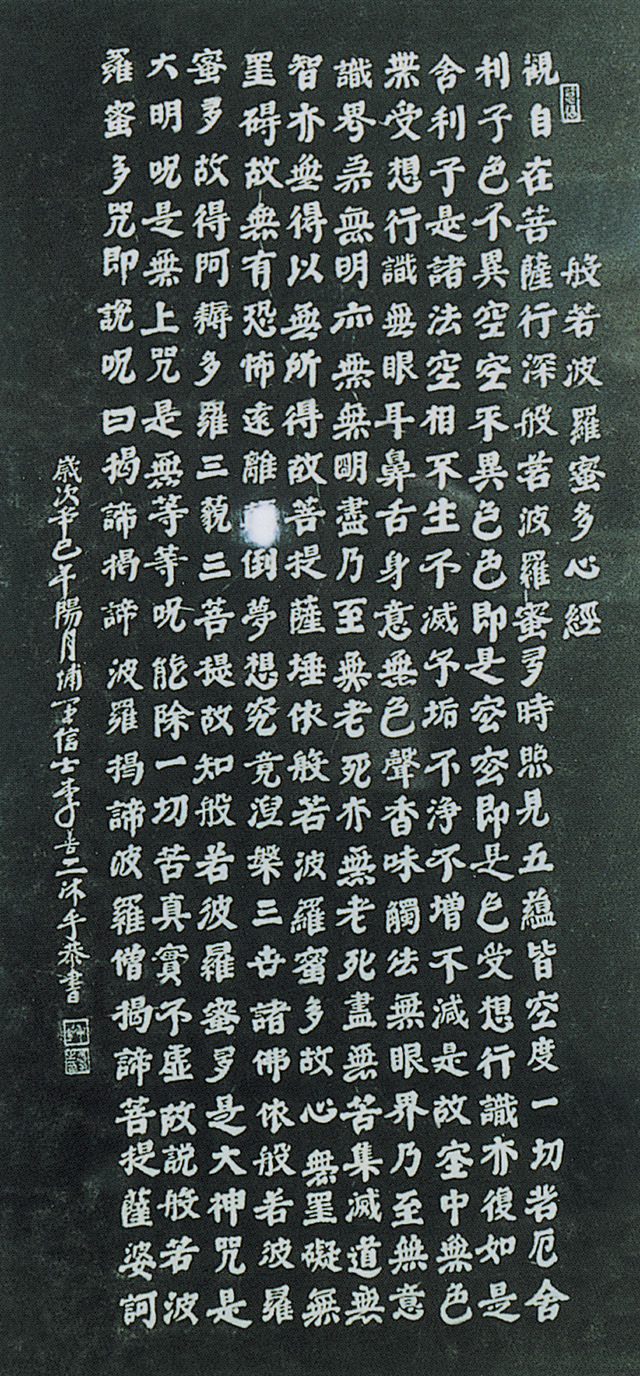 般若波羅蜜多心經
觀自在菩薩行深般若波羅蜜多時照見五蘊皆空度一切苦厄舍
利子色不異空空不異色色即是空空即是色受想行識亦復如是
舍利子是諸法空相不生不滅不垢不淨不增不減是故空中無色
無受想行識無眼耳鼻舌身意無色聲香味觸法無眼界乃至無意
識界無無明亦無無明盡乃至無老死亦無老死盡無苦集滅道無
智亦無得以無所得故菩提薩埵依般若波羅蜜多故心無罣礙無
罣碍故無有恐怖遠離倒夢想究竟涅槃三世諸佛依般若波羅
蜜多故得阿耨多羅三藐三菩提故知般若波羅蜜多是大神咒是
大明呪是無上咒是無等等呪能除一切苦真實不虛故說般若波
羅蜜多咒即說呪曰揭諦揭諦波羅揭諦波羅僧揭諦菩提薩婆訶
歲次辛巳年陽月埔里信士李善二沐手恭書